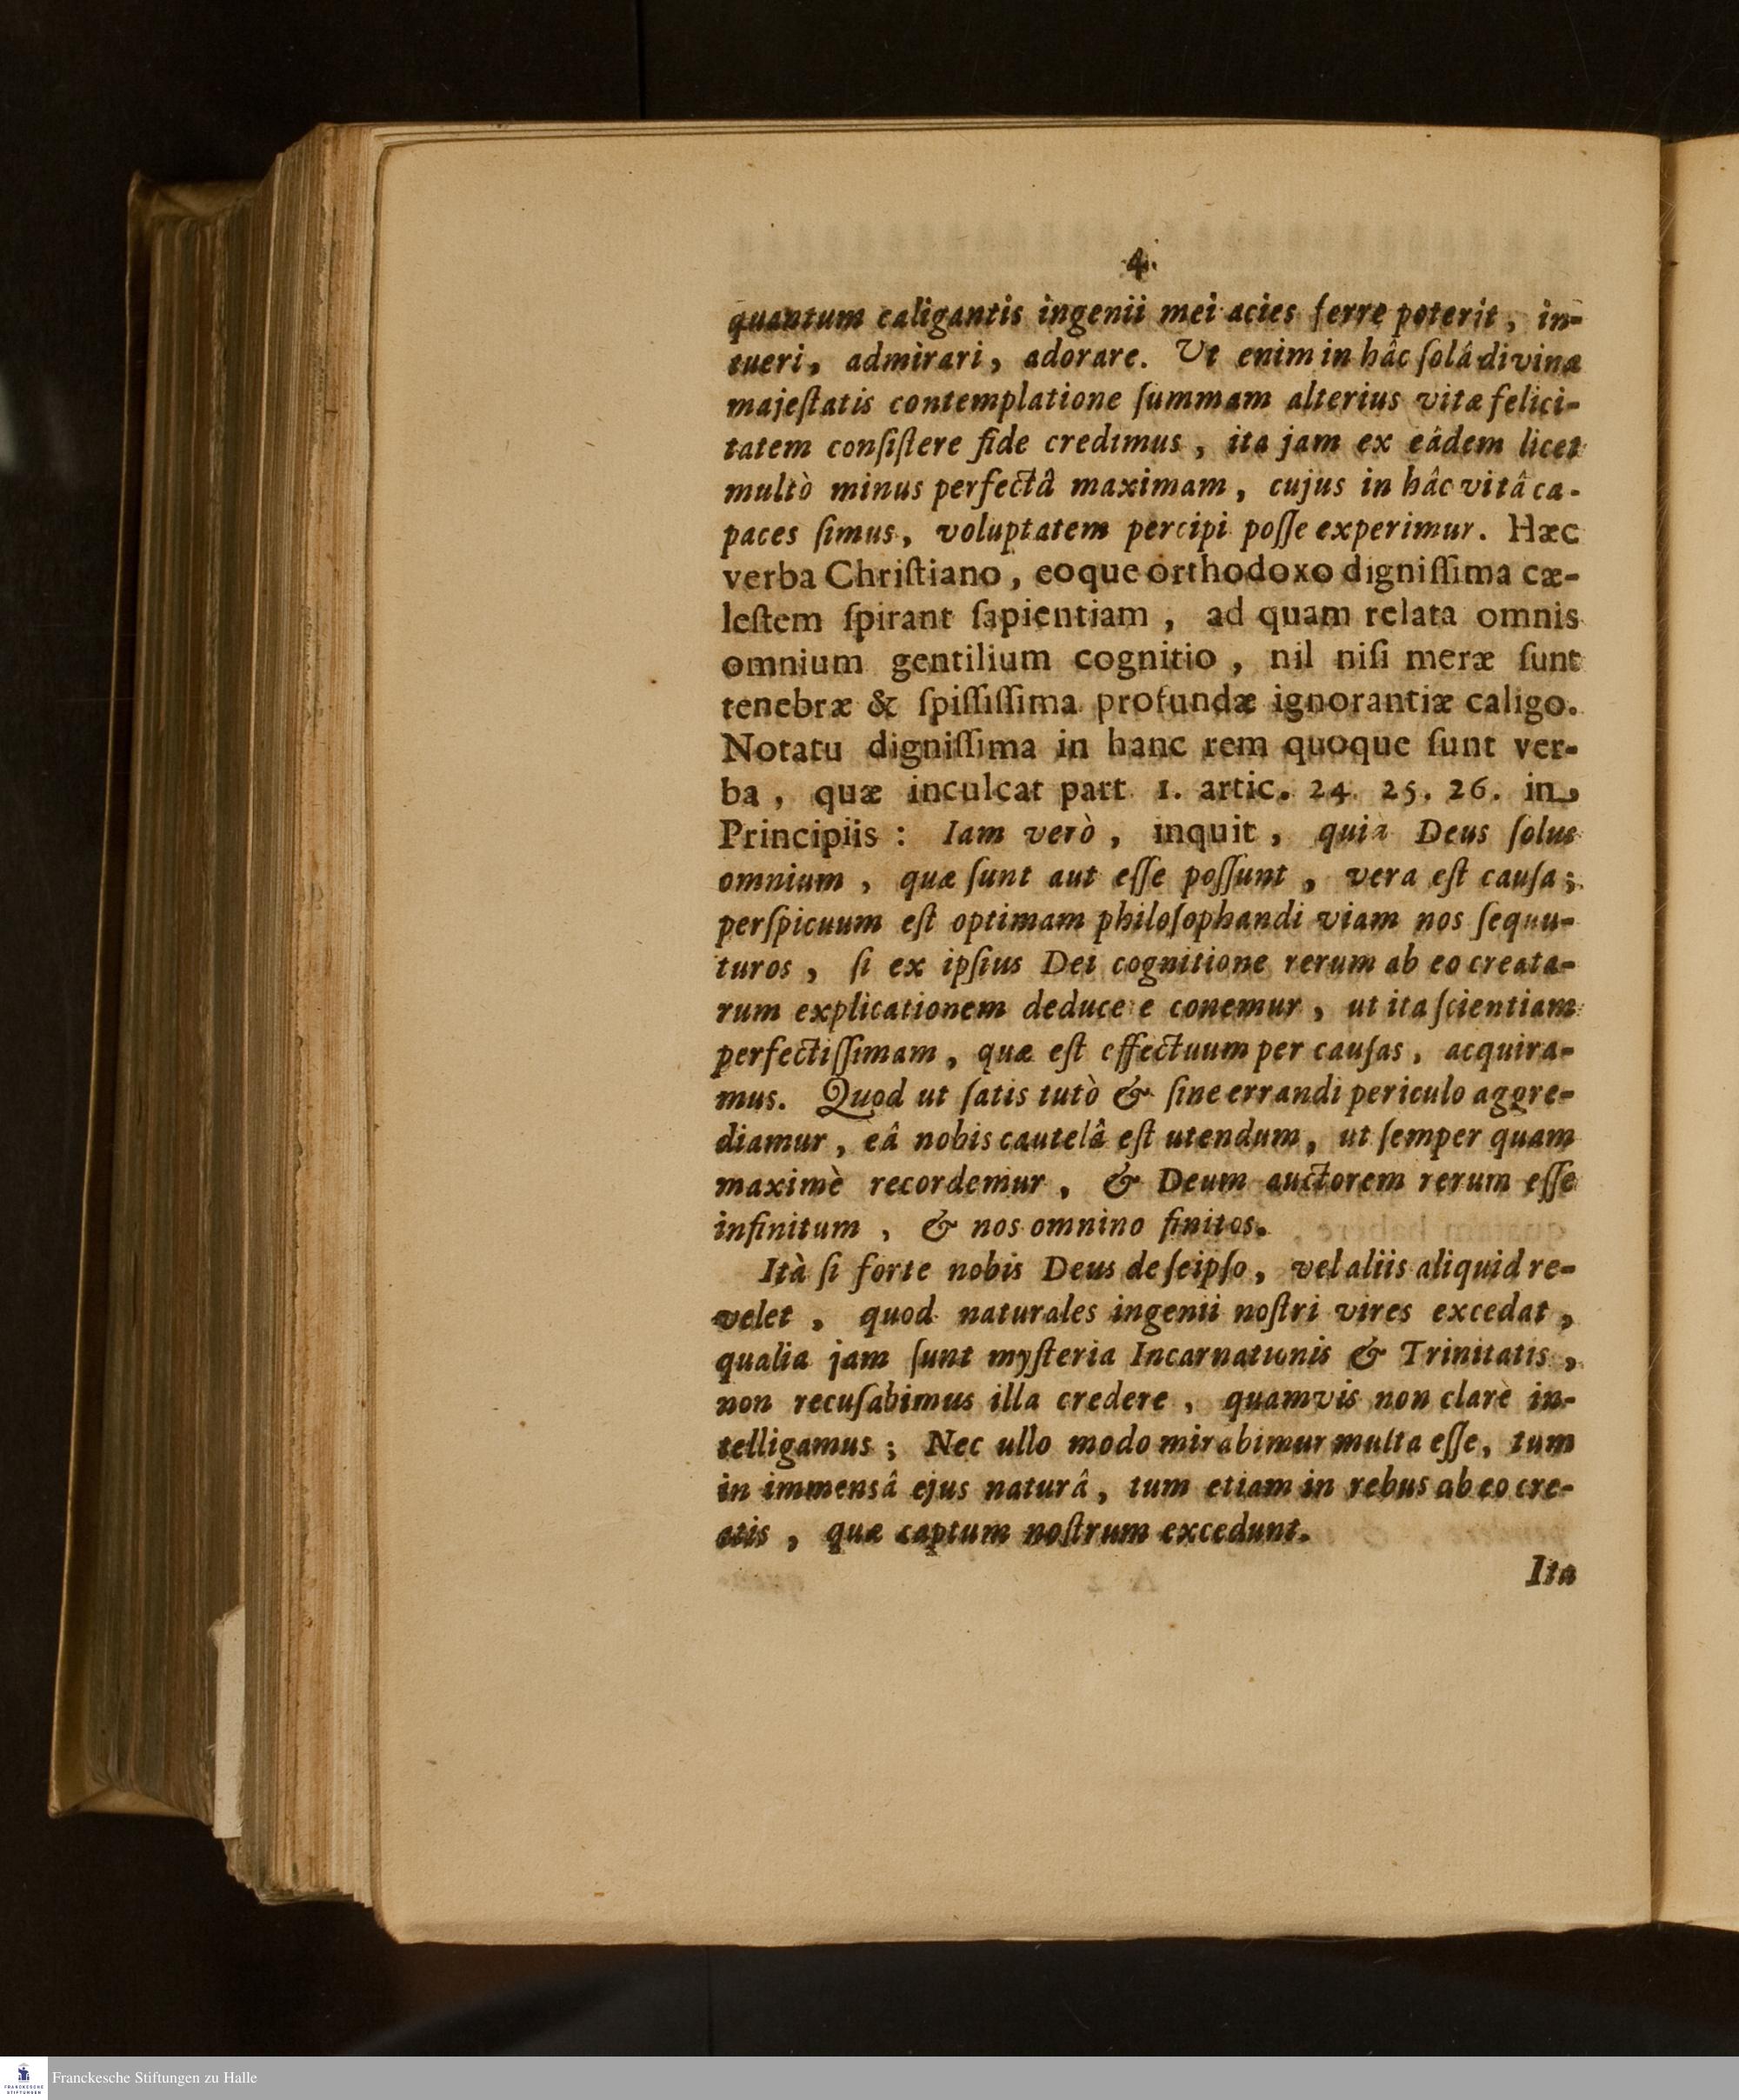 4.
quantum caligantis ingenii mei acies ferre poterit, in-
tueri, admirari, adorare. Ut enim in hâc ſolâ divinæ
majeſtatis contemplatione ſummam alterius vitæ felici-
tatem conſiſtere fide credimus, ita jam ex eâdem licet
multò minus perfectâ maximam, cujus in hâc vitâ ca-
paces ſimus, voluptatem percipi poſſe experimur. Hæc
verba Chriſtiano, eoque orthodoxo digniſſima cæ-
leſtem ſpirant ſapientiam, ad quam relata omnis
omnium gentilium cognitio, nil niſi meræ ſunt
tenebræ & ſpiſſiſſima profundæ ignorantiæ caligo.
Notatu digniſſima in hanc rem quoque ſunt ver-
ba, quæ inculcat part. 1. artic. 24. 25. 26. in
Principiis: Iam verò, inquit, quia Deus ſolus
omnium, quæ ſunt aut eſſe poſſunt, vera eſt cauſa;
perſpicuum eſt optimam philoſophandi viam nos ſequu-
turos, ſi ex ipſius Dei cognitione rerum ab eo creata-
rum explicationem deducere conemur, ut ita ſcientiam
perfectiſſimam, quæ eſt effectuum per cauſas, acquira-
mus. Quod ut ſatis tutò & ſine errandi periculo aggre-
diamur, eâ nobis cautelâ eſt utendum, ut ſemper quam
maximè recordemur, & Deum auctorem rerum eſſe
infinitum, & nos omnino finitos.
Ità ſi forte nobis Deus de ſeipſo, vel aliis aliquid re-
velet, quod naturales ingenii noſtri vires excedat,
qualia jam ſunt myſteria Incarnationis & Trinitatis,
non recuſabimus illa credere, quamvis non clarè in-
telligamus; Nec ullo modo mirabimur multa eſſe, tum
in immensâ ejus naturâ, tum etiam in rebus ab eo cre-
atis, quæ captum noſtrum excedunt.
Ita
FRANCKESCHE
STIFTUNGEN
Franckesche Stiftungen zu Halle